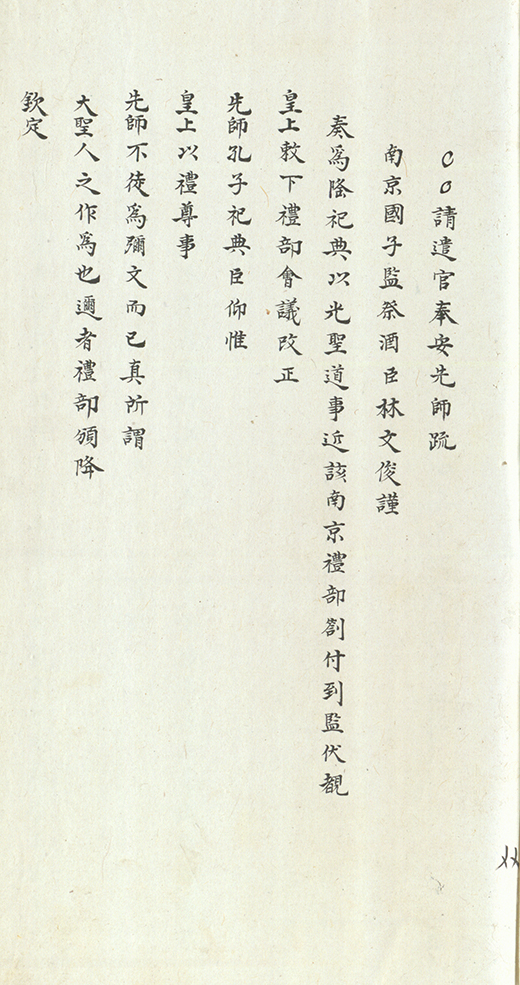 ○○請遣官奉安先師疏
南京國子監祭酒臣林文俊謹
奏為隆祀典以光聖道事近該南京禮部劄付到監伏覩
皇上敕下禮部會議改正
先師孔子祀典臣仰惟
皇上以禮尊事
先師不徒為彌文而已真所謂
大聖人之作為也邇者禮部頒降
欽定